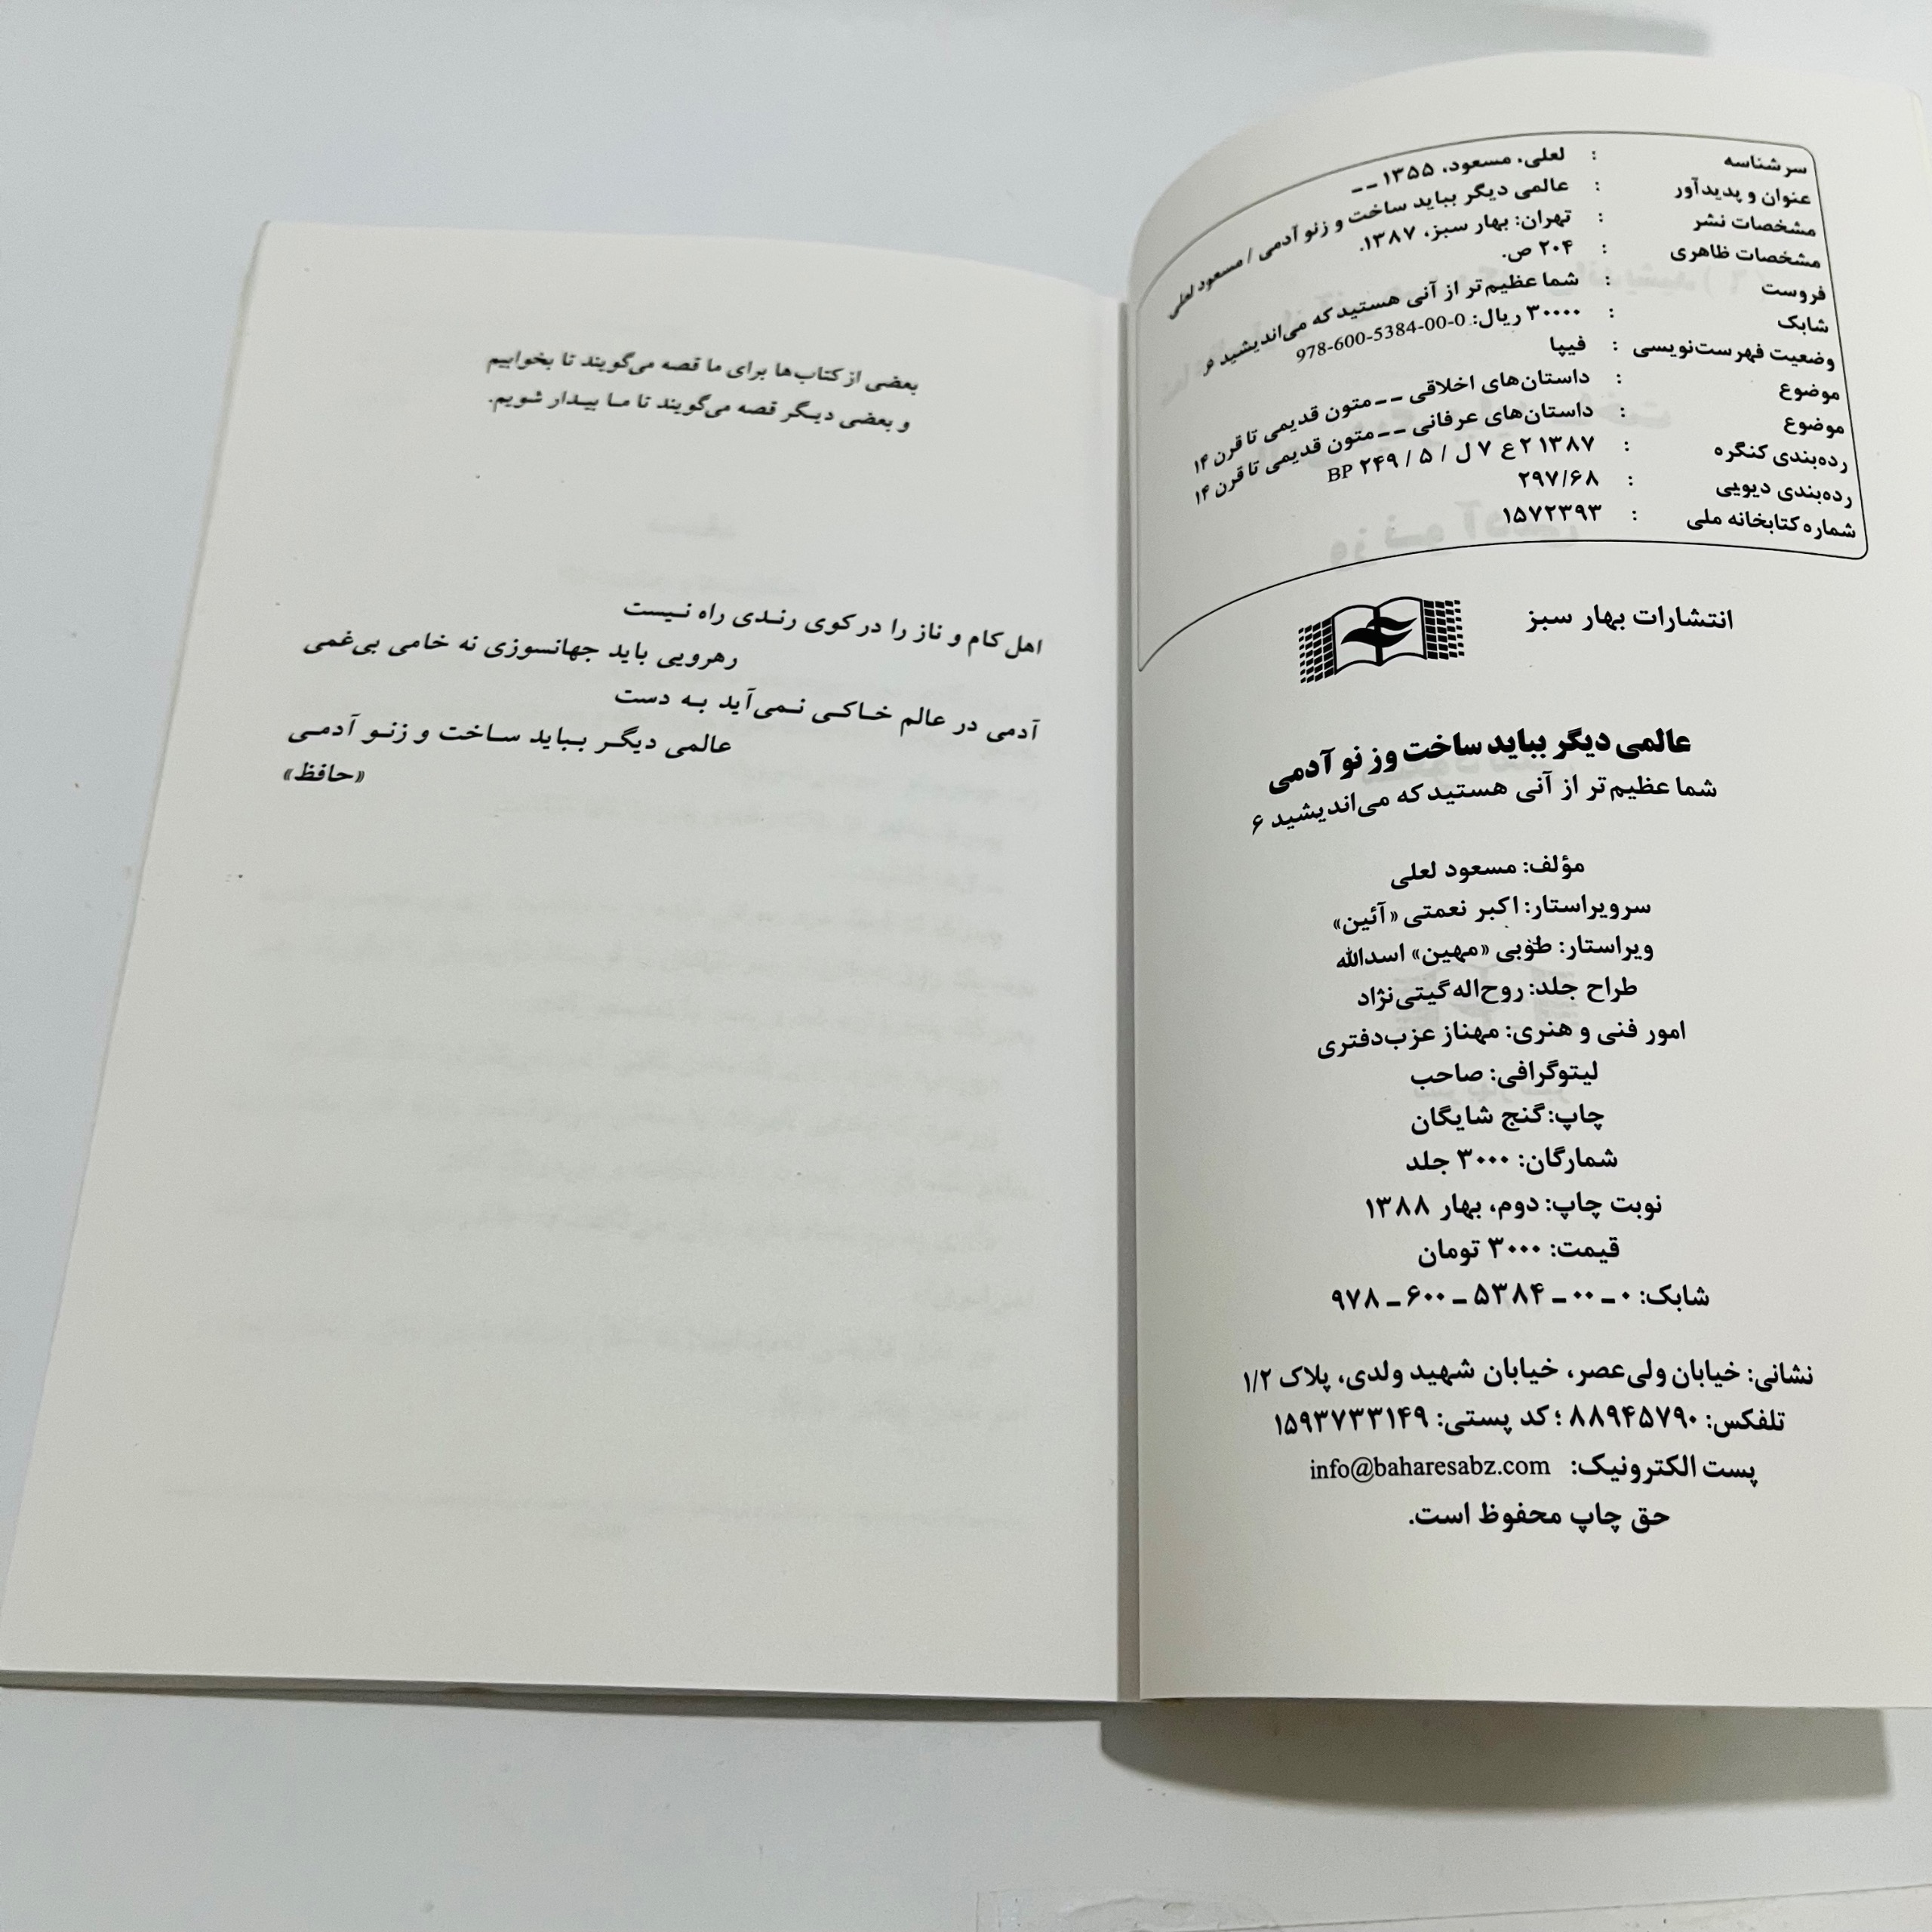 سرشناسه : لعلی، مسعود، ۱۳۵۵ ــ
عنوان و پدیدآور : عالمی دیگر بباید ساخت و زنو آدمی / مسعود لعلی
مشخصات نشر : تهران: بهار سبز، ۱۳۸۷.
مشخصات ظاهری : ۲۰۴ ص.
فروست : شما عظیم‌تر از آنی هستید که می‌اندیشید
شابک : ۳۰۰۰۰ ریال: 978-600-5384-00-0
وضعیت فهرست‌نویسی : فیپا
موضوع : داستان‌های اخلاقی ــ متون قدیمی تا قرن ۱۴
موضوع : داستان‌های عرفانی ــ متون قدیمی تا قرن ۱۴
رده‌بندی کنگره : ۱۳۸۷ ۲ ع ۷ ل / ۵ / ۲۴۹ BP
رده‌بندی دیویی : ۲۹۷/۶۸
شماره کتابخانه ملی : ۱۵۷۲۳۹۳
انتشارات بهار سبز
عالمی دیگر بباید ساخت وز نو آدمی
شما عظیم‌تر از آنی هستید که می‌اندیشید ۶
مؤلف: مسعود لعلی
سرویراستار: اکبر نعمتی «آئین»
ویراستار: طوبی «مهین» اسدالله
طراح جلد: روح‌اله گیتی‌نژاد
امور فنی و هنری: مهناز عزب‌دفتری
لیتوگرافی: صاحب
چاپ: گنج شایگان
شمارگان: ۳۰۰۰ جلد
نوبت چاپ: دوم، بهار ۱۳۸۸
قیمت: ۳۰۰۰ تومان
شابک: ۰ ــ ۰۰ ــ ۵۳۸۴ ــ ۶۰۰ ــ ۹۷۸
نشانی: خیابان ولی‌عصر، خیابان شهید ولدی، پلاک ۱/۲
تلفکس: ۸۸۹۴۵۷۹۰ ؛ کد پستی: ۱۵۹۳۷۳۳۱۴۹
پست الکترونیک: info@baharesabz.com
حق چاپ محفوظ است.
بعضی از کتاب‌ها برای ما قصه می‌گویند تا بخوابیم
و بعضی دیگر قصه می‌گویند تا ما بیدار شویم.
اهل کام و ناز را در کوی رندی راه نیست
رهرویی باید جهانسوزی نه خامی بی‌غمی
آدمی در عالم خاکی نمی‌آید به دست
عالمی دیگر بباید ساخت و زنو آدمی
«حافظ»